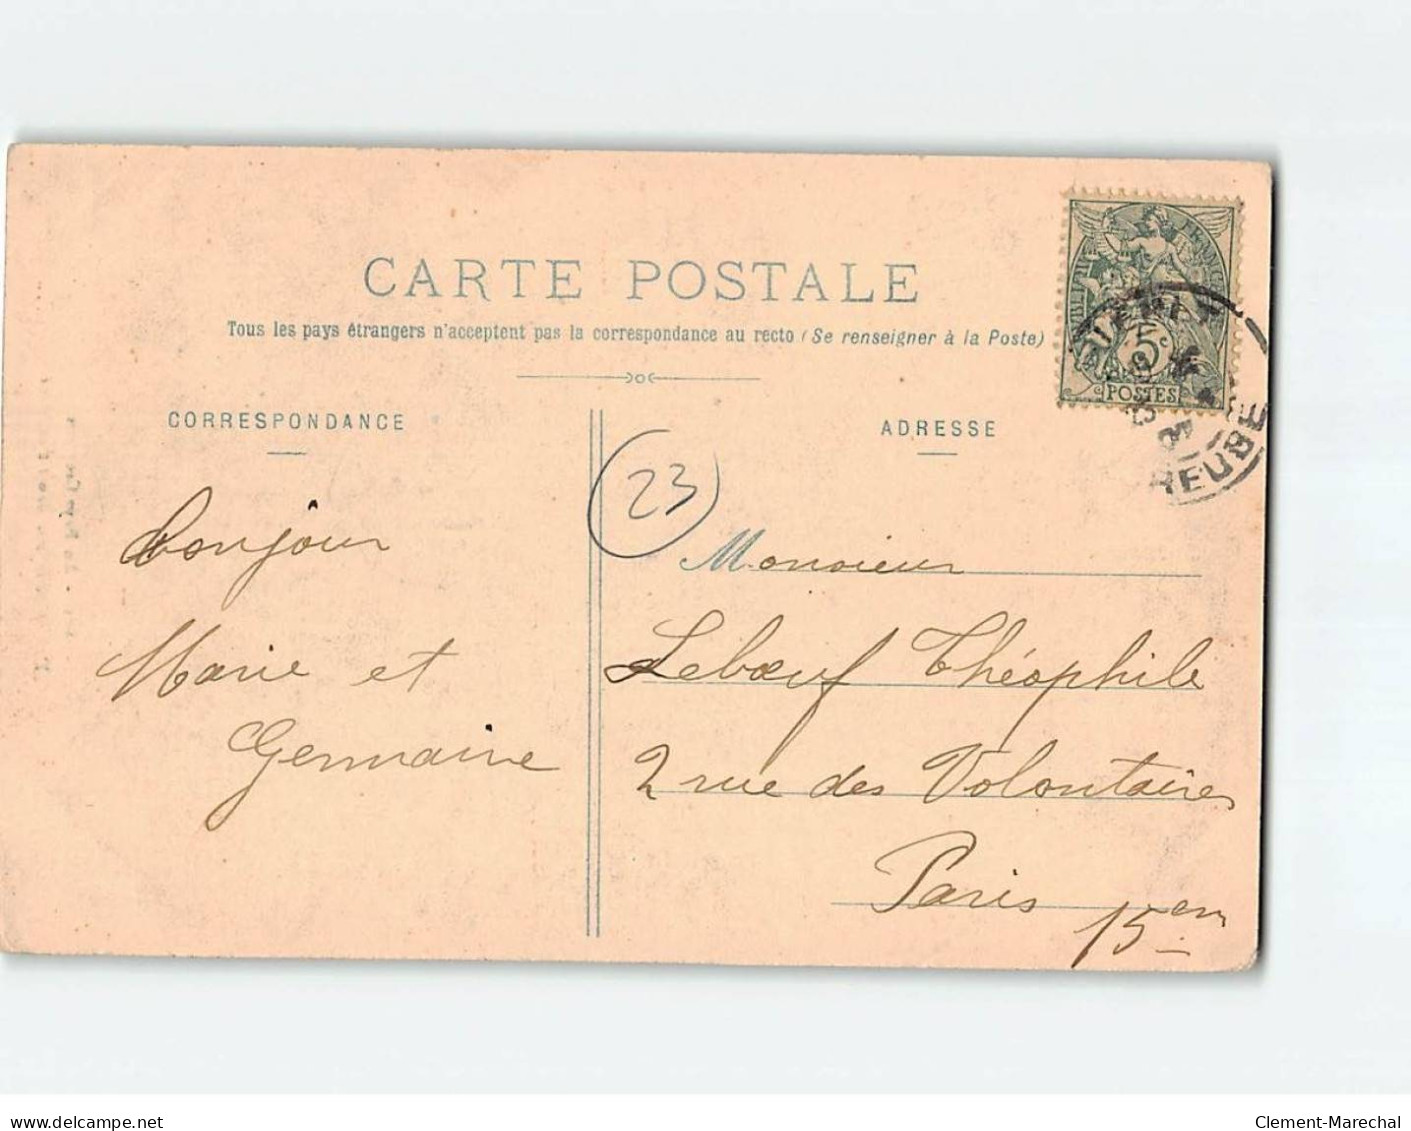 CARTE POSTALE
Tous les pays étrangers n'acceptent pas la correspondance au recto (Se renseigner à la Poste)
CORRESPONDANCE
ADRESSE
23
bonjour
Marie et
Germaine
Monsieur
Lebœuf Théophile
2 rue des Volontaires
Paris
15em
5c
POSTES
CREUSE
www.delcampe.net
Clement-Marechal